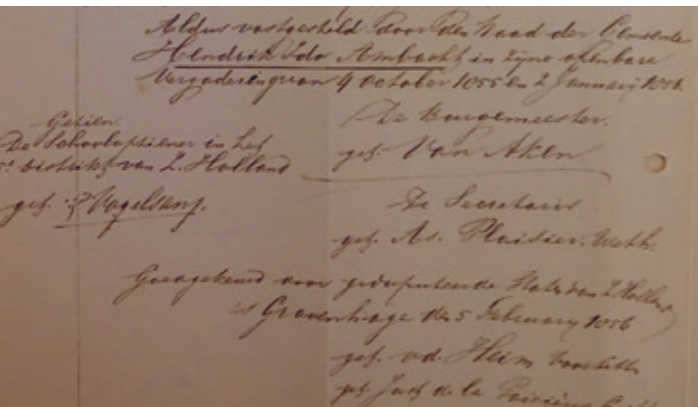 Aldus vastgesteld door den Raad der Gemeente
Hendrik Ido Ambacht in zijne openbare
Vergaderingvan 4 October 1855 en 2 January 1856.
De Burgemeester.
get. Van Aken
Gezien.
De Schoolopziener in het
5e district van Z. Holland
get. Vogelsang.
De Secretaris
get. As. Plaisier. Weth.
Goedgekeurd door gedeputeerde Staten van Z. Holland
's Gravenhage den 5 February 1856
get. vd. Heim Voorzitter
get. de la